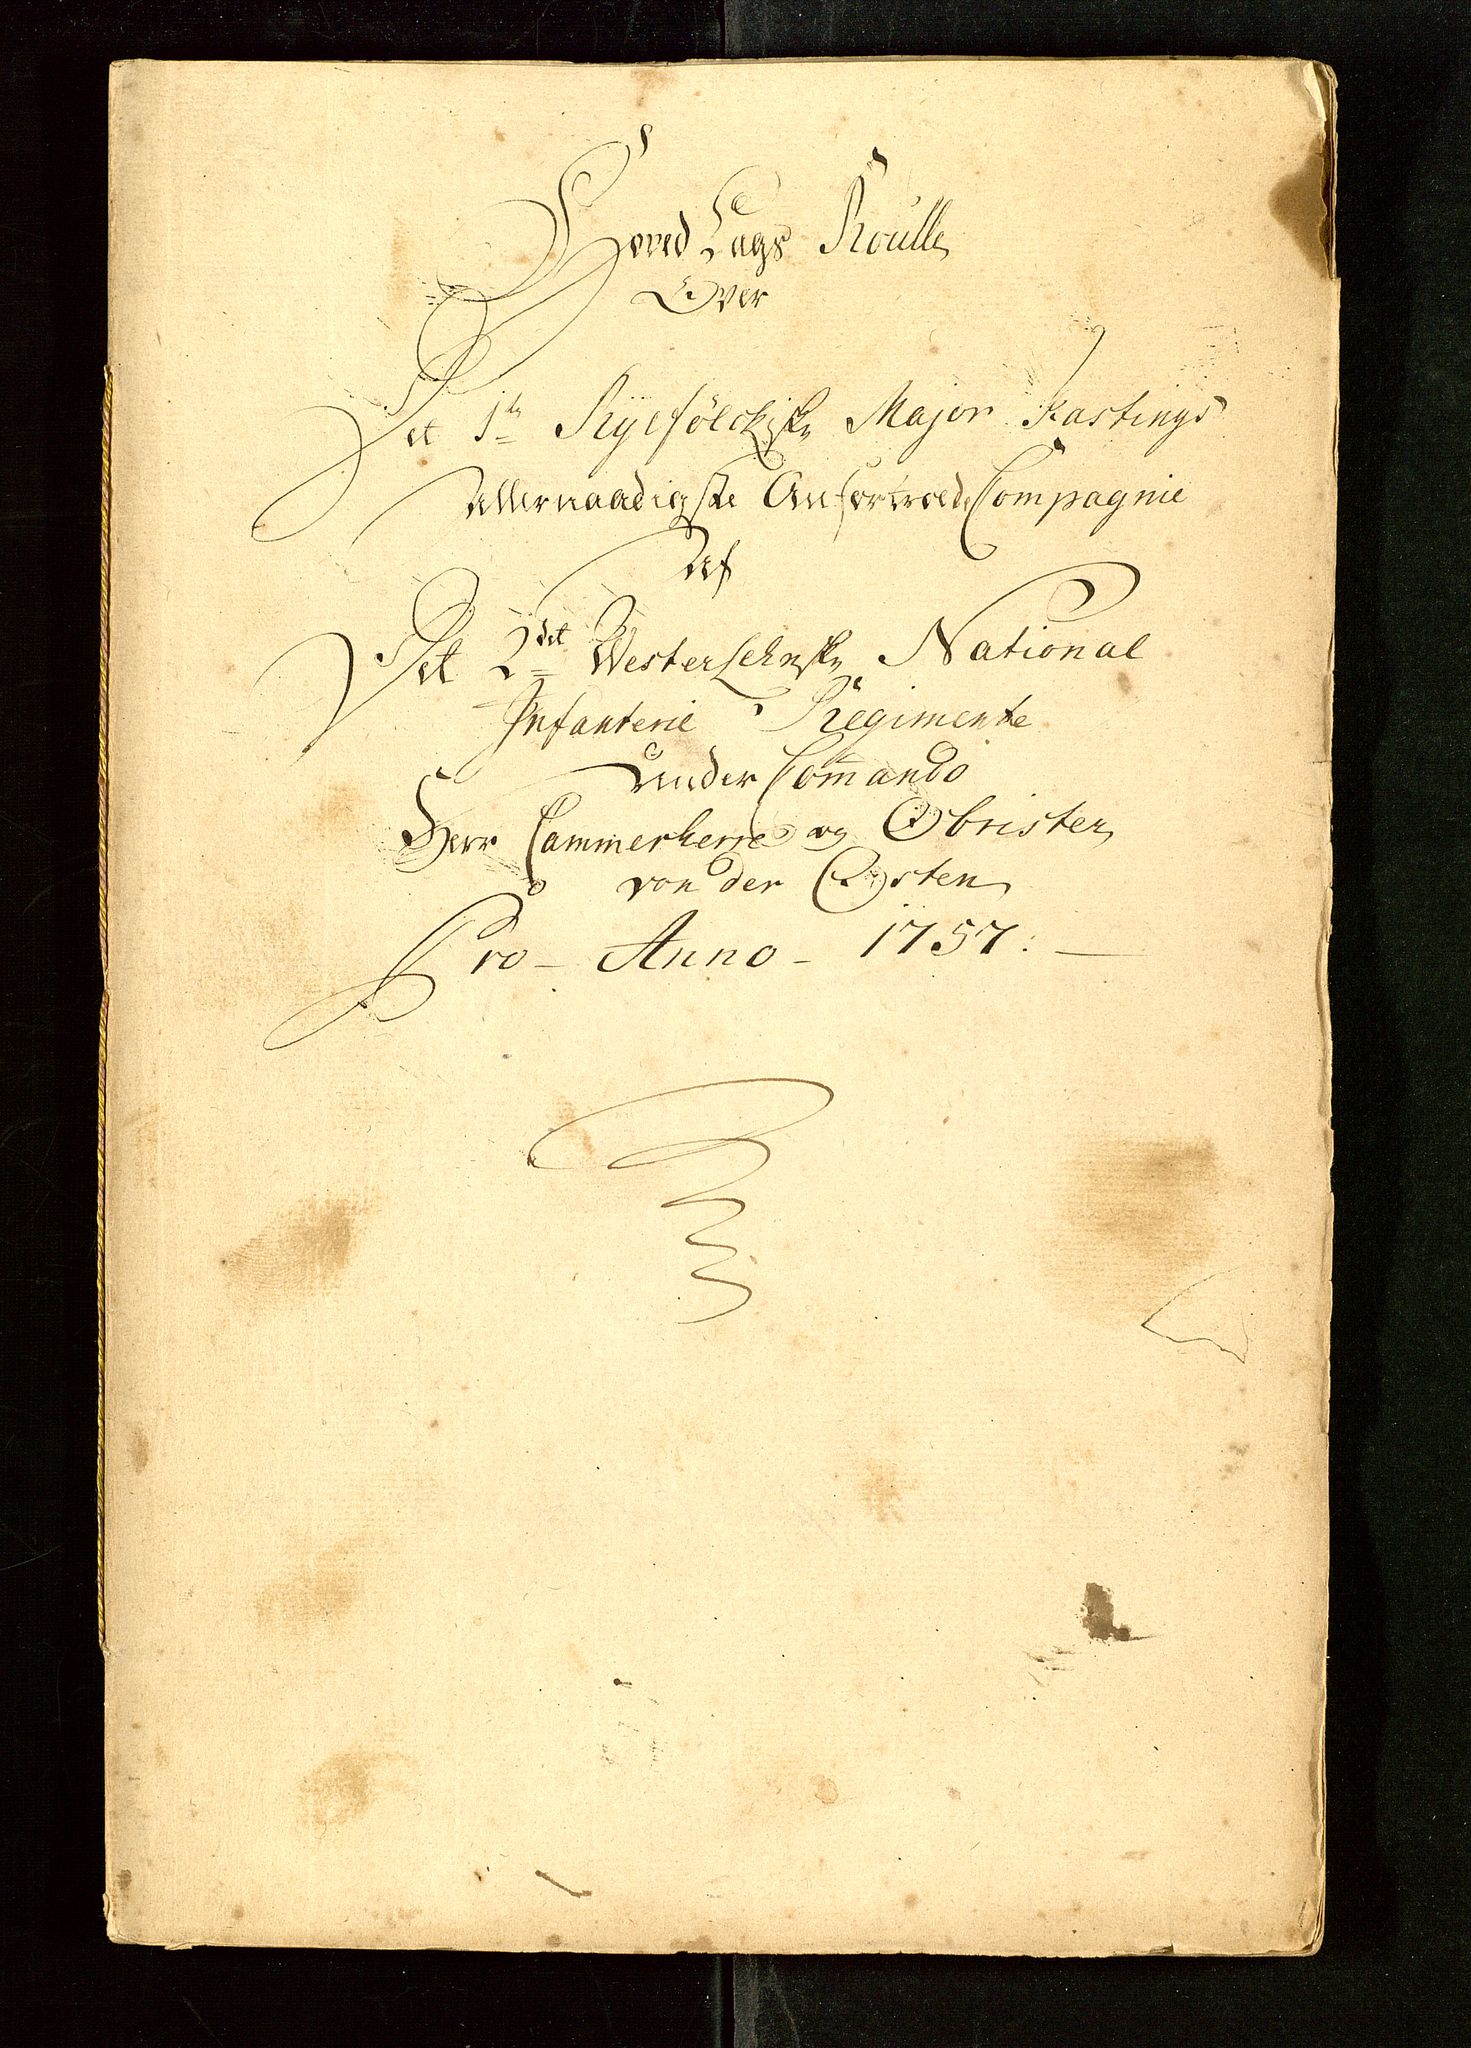 Hoved Lags Roulle
Over
Det 1te Ryefølckiske Major Kastings
Allernaadigste Anfortroede Compagnie
Af
Det 2det Westerlehnske National
Infanterie Regimente
Under Com̄ando
Herr Cammerherre og Obrister
von der Osten
Pro - Anno - 1757.